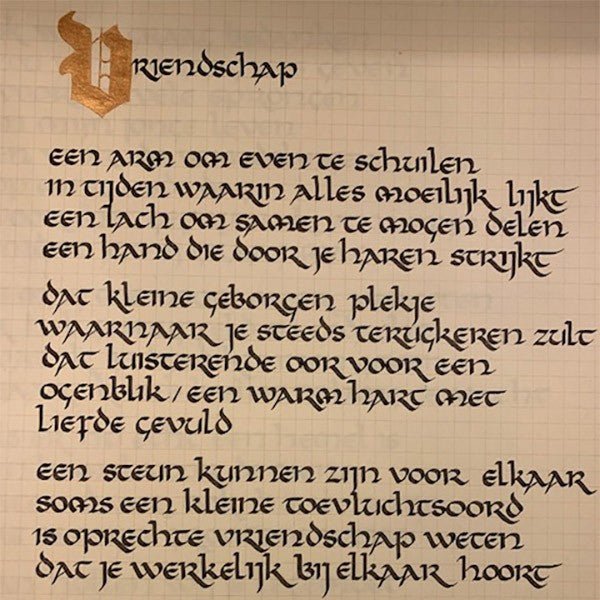 Vriendschap
een arm om even te schuilen
in tijden waarin alles moeilijk lijkt
een lach om samen te mogen delen
een hand die door je haren strijkt
dat kleine geborgen plekje
waarnaar je steeds terugkeren zult
dat luisterende oor voor een
ogenblik / een warm hart met
liefde gevuld
een steun kunnen zijn voor elkaar
soms een kleine toevluchtsoord
is oprechte vriendschap weten
dat je werkelijk bij elkaar hoort